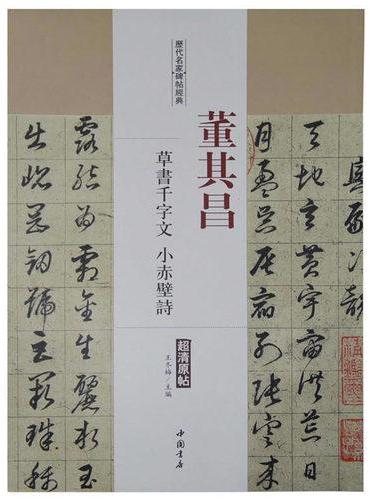 歷代名家碑帖經典
董其昌
草書千字文 小赤壁詩
超清原帖
王冬梅/主編
中国書店
次韻
天地玄黃宇宙洪荒日
月盈昃辰宿列張寒來
露結為霜金生麗水玉
出崐岡劍號巨闕珠稱